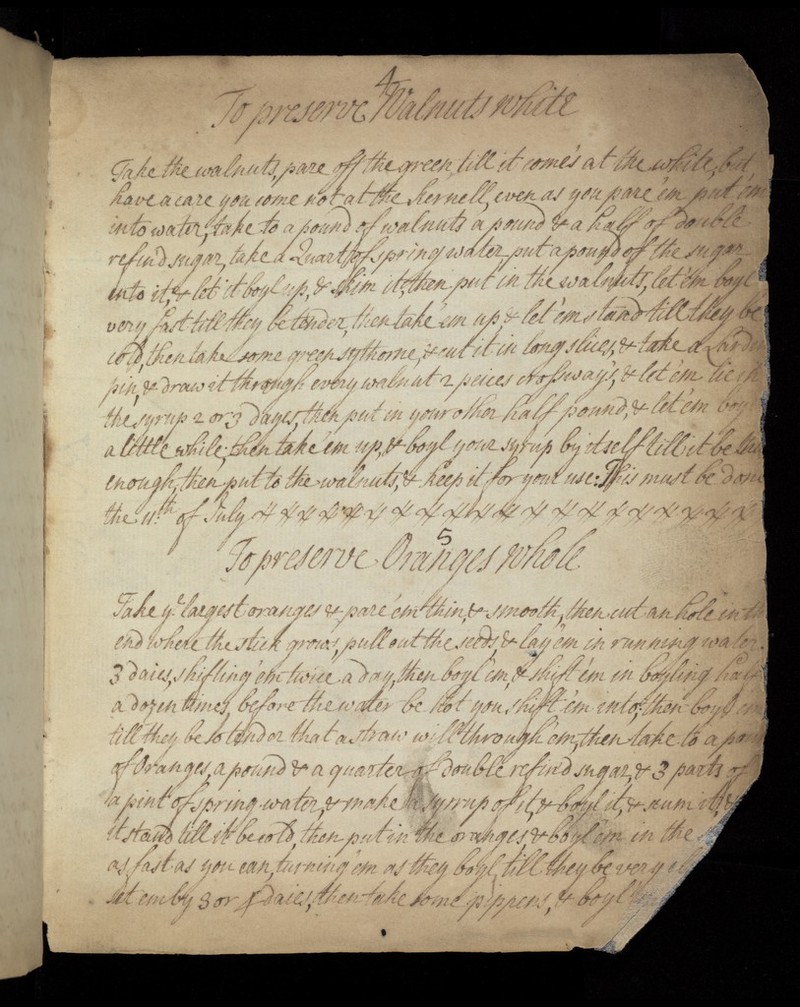 4
To preserve Walnuts white
Take the walnuts, pare off the green, till it come's at the white, but
have a care you come not at the kernell, even as you pare 'em put 'em
into water, take to a pound of walnuts a pound & a half of double
refin'd sugar, take a Quart of spring water, put a pound of the sugar
into it, & let it boyl up, & skim it, then put in the walnuts, let 'em boyl
very fast till they be tender, then take 'em up, & let 'em stand till they be
cold, then take some green sytherne, & cut it in long slices, & take a
pin, & draw it through every walnut 2 peices crossways, & let 'em lie in
the syrup 2 or 3 dayes, then put in your other half pound, & let 'em boyl
a little while, then take 'em up, & boyl your syrup by itself till it be
enough, then put to the walnuts, & keep it for your use: This must be done
the 11th of July
5
To preserve Oranges whole
Take ye largest oranges & pare 'em thin, & smooth, then cut an hole in the
end where the stick grows, pull out the seeds, & lay 'em in running water
3 daies, shifting 'em twice a day, then boyl 'em, & shift 'em in boyling half
a dozen times, before the water be hot you shift 'em into, then boyl 'em
till they be so tender that a straw will through 'em, then take to a pound
of Oranges, a pound & a quarter of double refin'd sugar, & 3 parts of
a pint of spring water, & make a syrrup of it, & boyl it, & scum it, &
it stand till it be cold, then put in the oranges, & boyl 'em in the
as fast as you can, turning 'em as they boyl, till they be very
set em by 3 or 4 daies, then take some pippens, & boyl